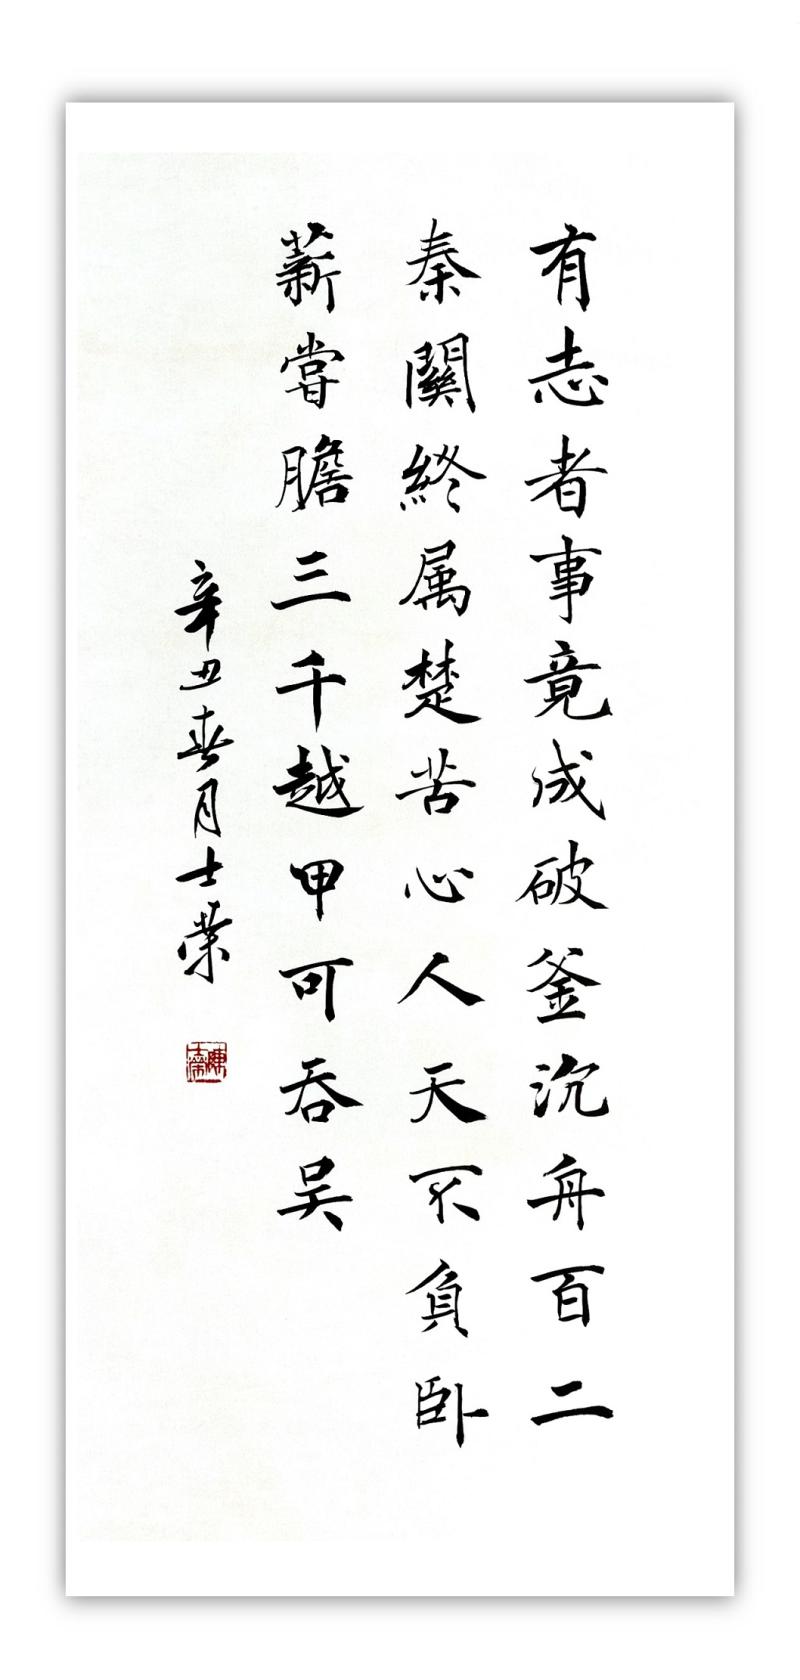 有志者事竟成破釜沉舟百二
秦關終属楚苦心人天不負卧
薪嘗膽三千越甲可吞吴
辛丑春月士榮